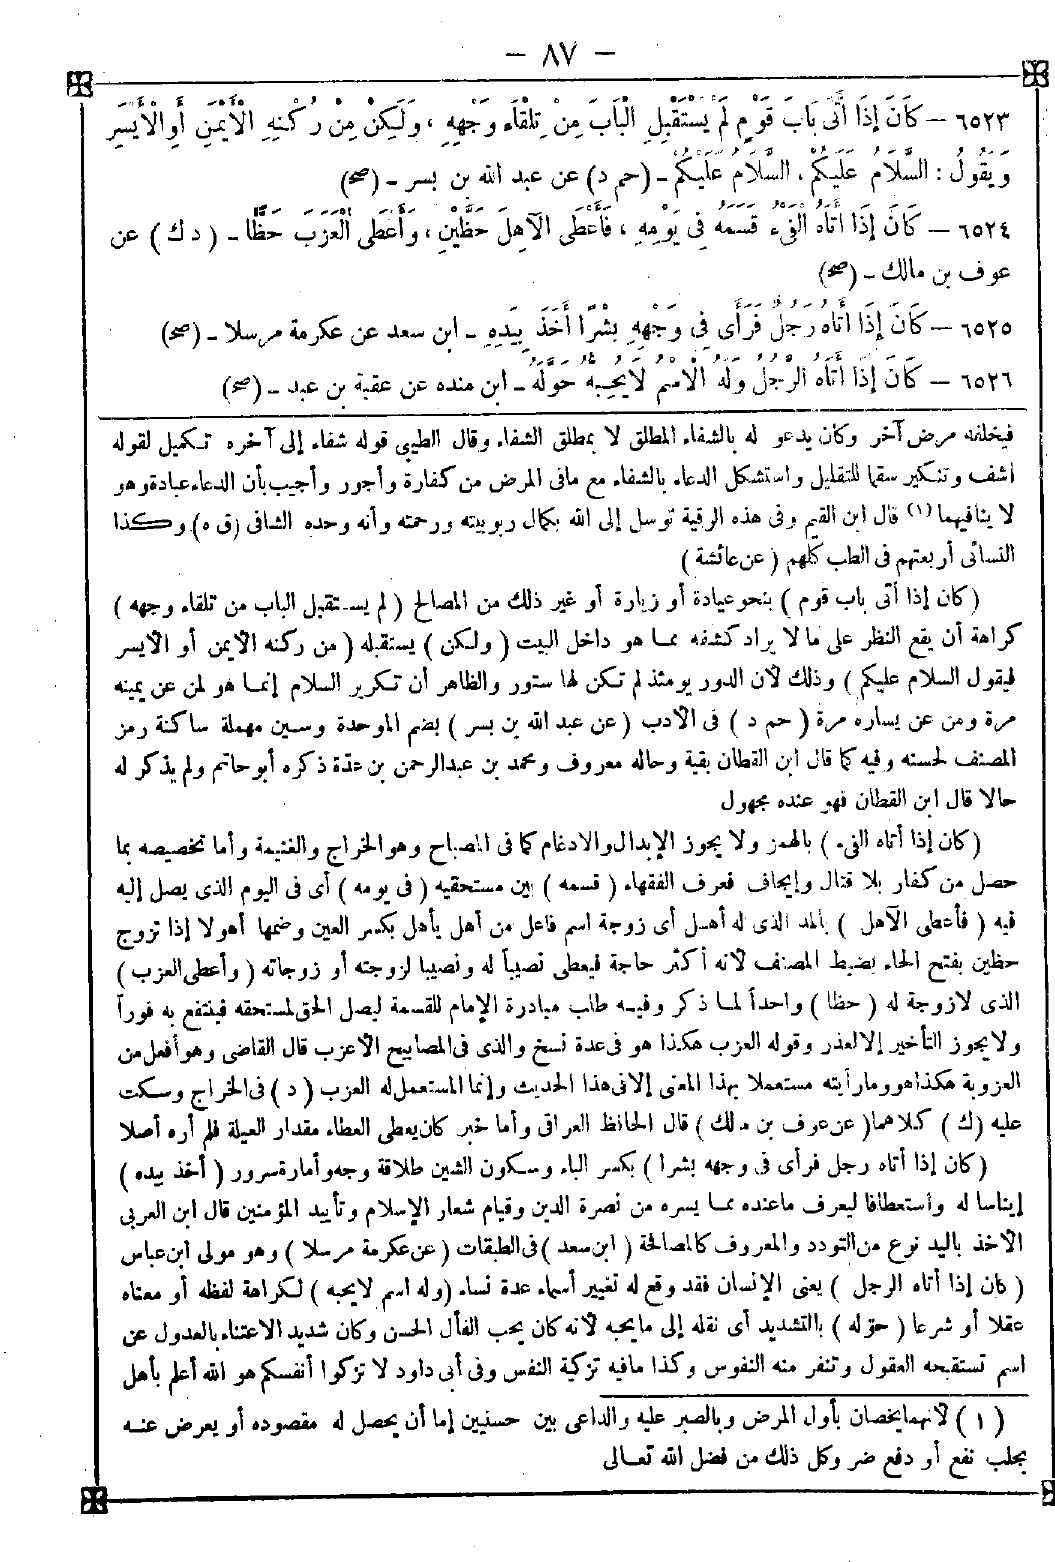 — ٨٧ —
٦٥٢٣ — كَانَ إِذَا أَتَى بَابَ قَوْمٍ لَمْ يَسْتَقْبِلِ الْبَابَ مِنْ تِلْقَاءِ وَجْهِهِ ، وَلَكِنْ مِنْ رُكْنِهِ الْأَيْمَنِ أَوِ الْأَيْسَرِ
وَيَقُولُ : السَّلَامُ عَلَيكُمْ ، السَّلَامُ عَلَيْكُمْ - (حم د) عن عبد الله بن بسر - (صح)
٦٥٢٤ — كَانَ إِذَا أَتَاهُ الْفَيْءُ قَسَمَهُ فِي يَوْمِهِ ، فَأَعْطَى الْآهِلَ حَظَّيْنِ ، وَأَعْطَى الْعَزَبَ حَظًّا - ( د ك ) عن
عوف بن مالك - (صح)
٦٥٢٥ — كَانَ إِذَا أَتَاهُ رَجُلٌ فَرَأَى فِي وَجْهِهِ بِشْرًا أَخَذَ بِيَدِهِ - ابن سعد عن عكرمة مرسلا - (صح)
٦٥٢٦ — كَانَ إِذَا أَتَاهُ الرَّجُلُ وَلَهُ الْاسْمُ لَا يُحِبُّهُ حَوَّلَهُ - ابن منده عن عتبة بن عبد - (صح)
فيخلفه مرض آخر وكان يدعو له بالشفاء المطلق لا بمطلق الشفاء وقال الطيبي قوله شفاء إلى آخره تكميل لقوله
اشف وتنكير سقما للتقليل واستشكل الدعاء بالشفاء مع مافى المرض من كفارة وأجور وأجيب بأن الدعاء عبادة وهو
لا ينافيهما (١) قال ابن القيم وفى هذه الرقية توسل إلى الله بكمال ربوبيته ورحمته وأنه وحده الشافى (ق ه) وكذا
النسائى أربعتهم فى الطب كلهم ( عن عائشة )
(كان إذا أتى باب قوم ) بنحو عيادة أو زيارة أو غير ذلك من المصالح ( لم يستقبل الباب من تلقاء وجهه )
كراهة أن يقع النظر على ما لا يراد كشفه مما هو داخل البيت ( ولكن ) يستقبله ( من ركنه الأيمن أو الأيسر
فيقول السلام عليكم ) وذلك لأن الدور يومئذ لم تكن لها ستور والظاهر أن تكرير السلام إنما هو لمن عن يمينه
مرة ومن عن يساره مرة ( حم د ) فى الأدب ( عن عبد الله بن بسر ) بضم الموحدة وسين مهملة ساكنة رمز
المصنف لحسنه وفيه كما قال ابن القطان بقية وحاله معروف ومحمد بن عبدالرحمن بن عدة ذكره أبو حاتم ولم يذكر له
حالا قال ابن القطان فهو عنده مجهول
(كان إذا أتاه الفىء ) بالهمز ولا يجوز الإبدال والادغام كما فى المصباح وهو الخراج والغنيمة وأما تخصيصه بما
حصل من كفار بلا قتال وإيجاف فعرف الفقهاء ( قسمه ) بين مستحقيه ( فى يومه ) أى فى اليوم الذى يصل إليه
فيه ( فأعطى الآهل ) بالمد الذى له أهل أى زوجة اسم فاعل من أهل يأهل بكسر العين وضمها أهولا إذا تزوج
حظين بفتح الحاء بضبط المصنف لأنه أكثر حاجة فيعطى نصيباً له ونصيبا لزوجته أو زوجاته ( وأعطى العزب )
الذى لازوجة له ( حظا ) واحداً لما ذكر وفيه طلب مبادرة الإمام للقسمة ليصل الحق لمستحقه فينتفع به فوراً
ولا يجوز التأخير إلا لعذر وقوله العزب هكذا هو فى عدة نسخ والذى فى المصابيح الأعزب قال القاضى وهو أفعل من
العزوبة هكذا هو وما رأيته مستعملا بهذا المعنى إلا فى هذا الحديث وإنما المستعمل له العزب ( د ) فى الخراج وسكت
عليه (ك ) كلاهما (عن عوف بن مالك ) قال الحافظ العراقى وأما خبر كان يعطى العطاء مقدار العيلة فلم أره أصلا
(كان إذا أتاه رجل فرأى فى وجهه بشرا ) بكسر الباء وسكون الشين طلاقة وجه وأمارة سرور ( أخذ بيده )
إيناسا له واستعطافا ليعرف ماعنده مما يسره من نصرة الدين وقيام شعار الإسلام وتأييد المؤمنين قال ابن العربى
الأخذ باليد نوع من التودد والمعروف كالمصافحة ( ابن سعد ) فى الطبقات ( عن عكرمة مرسلا ) وهو مولى ابن عباس
( كان إذا أتاه الرجل ) يعنى الإنسان فقد وقع له تغيير أسماء عدة نساء (وله اسم لا يحبه ) لكراهة لفظه أو معناه
عقلا أو شرعا ( حوّله ) بالتشديد أى نقله إلى مايحبه لأنه كان يحب الفأل الحسن وكان شديد الاعتناء بالعدول عن
اسم تستقبحه العقول وتنفر منه النفوس وكذا مافيه تزكية النفس وفى أبى داود لا تزكوا أنفسكم هو الله أعلم بأهل
( ١ ) لأنهما يحصلان بأول المرض وبالصبر عليه والداعى بين حسنيين إما أن يحصل له مقصوده أو يعرض عنه
بجلب نفع أو دفع ضر وكل ذلك من فضل الله تعالى